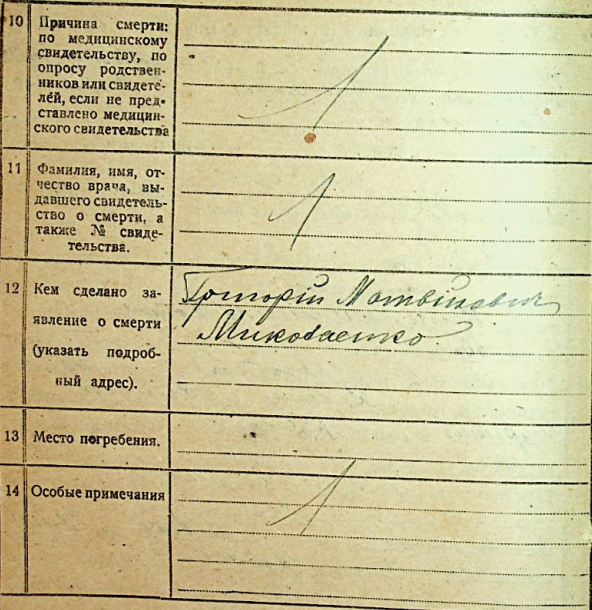 10 Причина смерти:
по медицинскому
свидетельству, по
опросу родствен-
ников или свидете-
лей, если не пред-
ставлено медицин-
ского свидетельства
11 Фамилия, имя, от-
чество врача, вы-
давшего свидетель-
ство о смерти, а
также № свиде-
тельства.
12 Кем сделано за-
явление о смерти
(указать подроб-
ный адрес).
Григорій
13 Место погребения.
14 Особые примечания